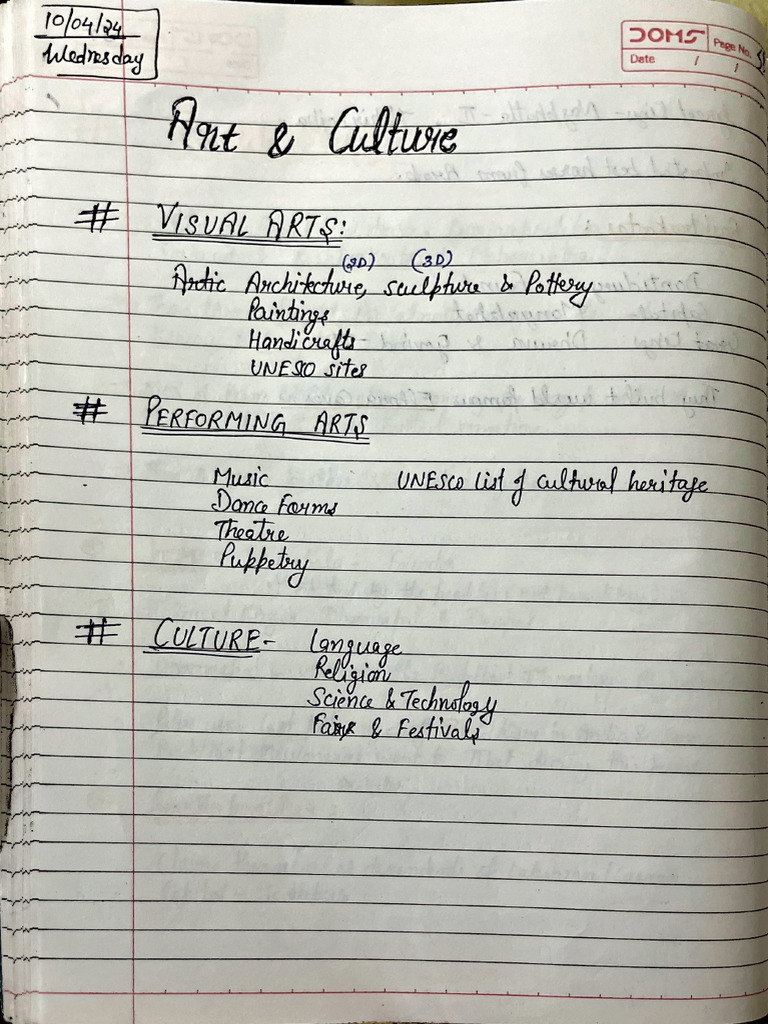 10/04/24
Wednesday
DOMS
Page No.
Date / /
Art & Culture
# VISUAL ARTS:
(2D) (3D)
Artic Architecture, sculpture & Pottery
Paintings
Handicrafts
UNESCO sites
# PERFORMING ARTS
Music UNESCO list of cultural heritage
Dance Forms
Theatre
Puppetry
# CULTURE - language
Religion
Science & Technology
Fairs & Festivals